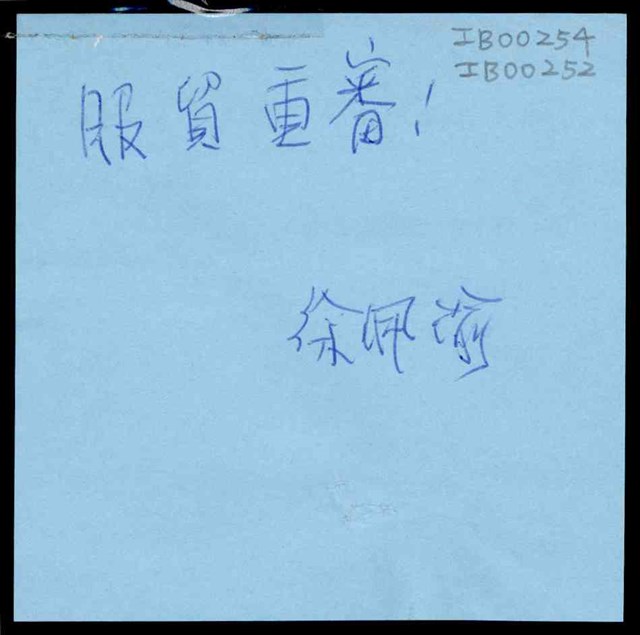 IB00254
IB00252
服貿重審!
徐佩渝